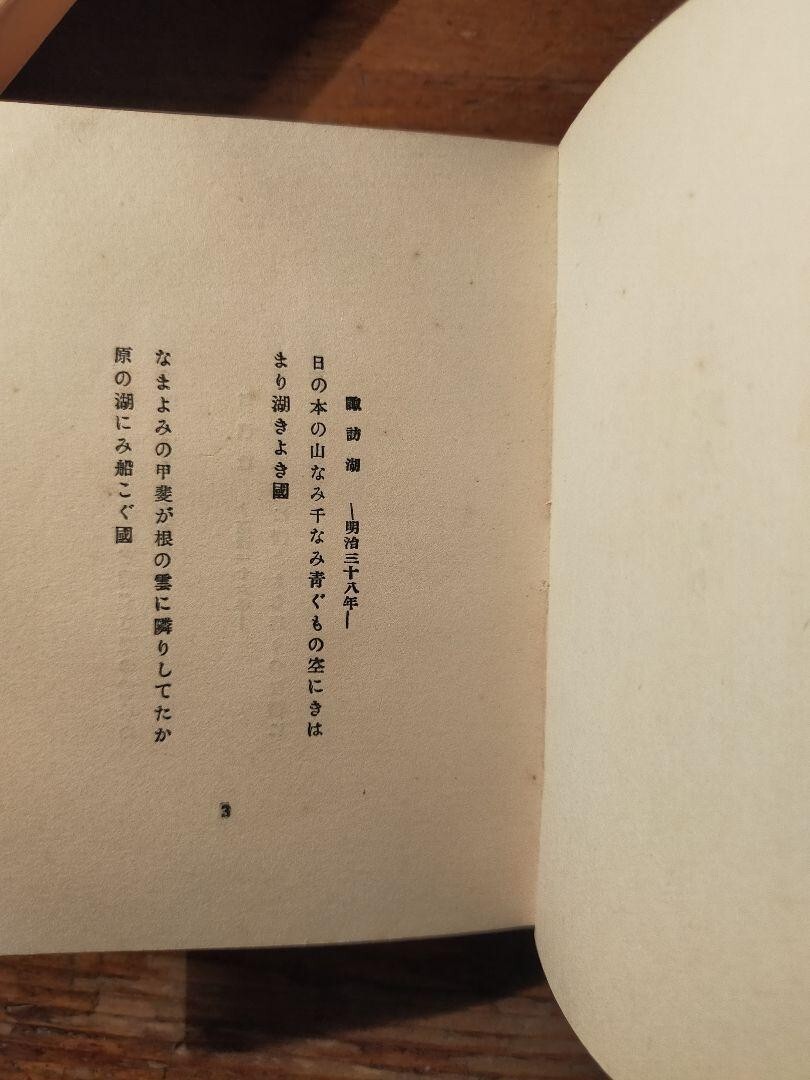 諏訪湖 ―明治三十八年―
日の本の山なみ千なみ青ぐもの空にきは
まり湖きよき國
なまよみの甲斐が根の雲に隣りしてたか
原の湖にみ船こぐ國
3